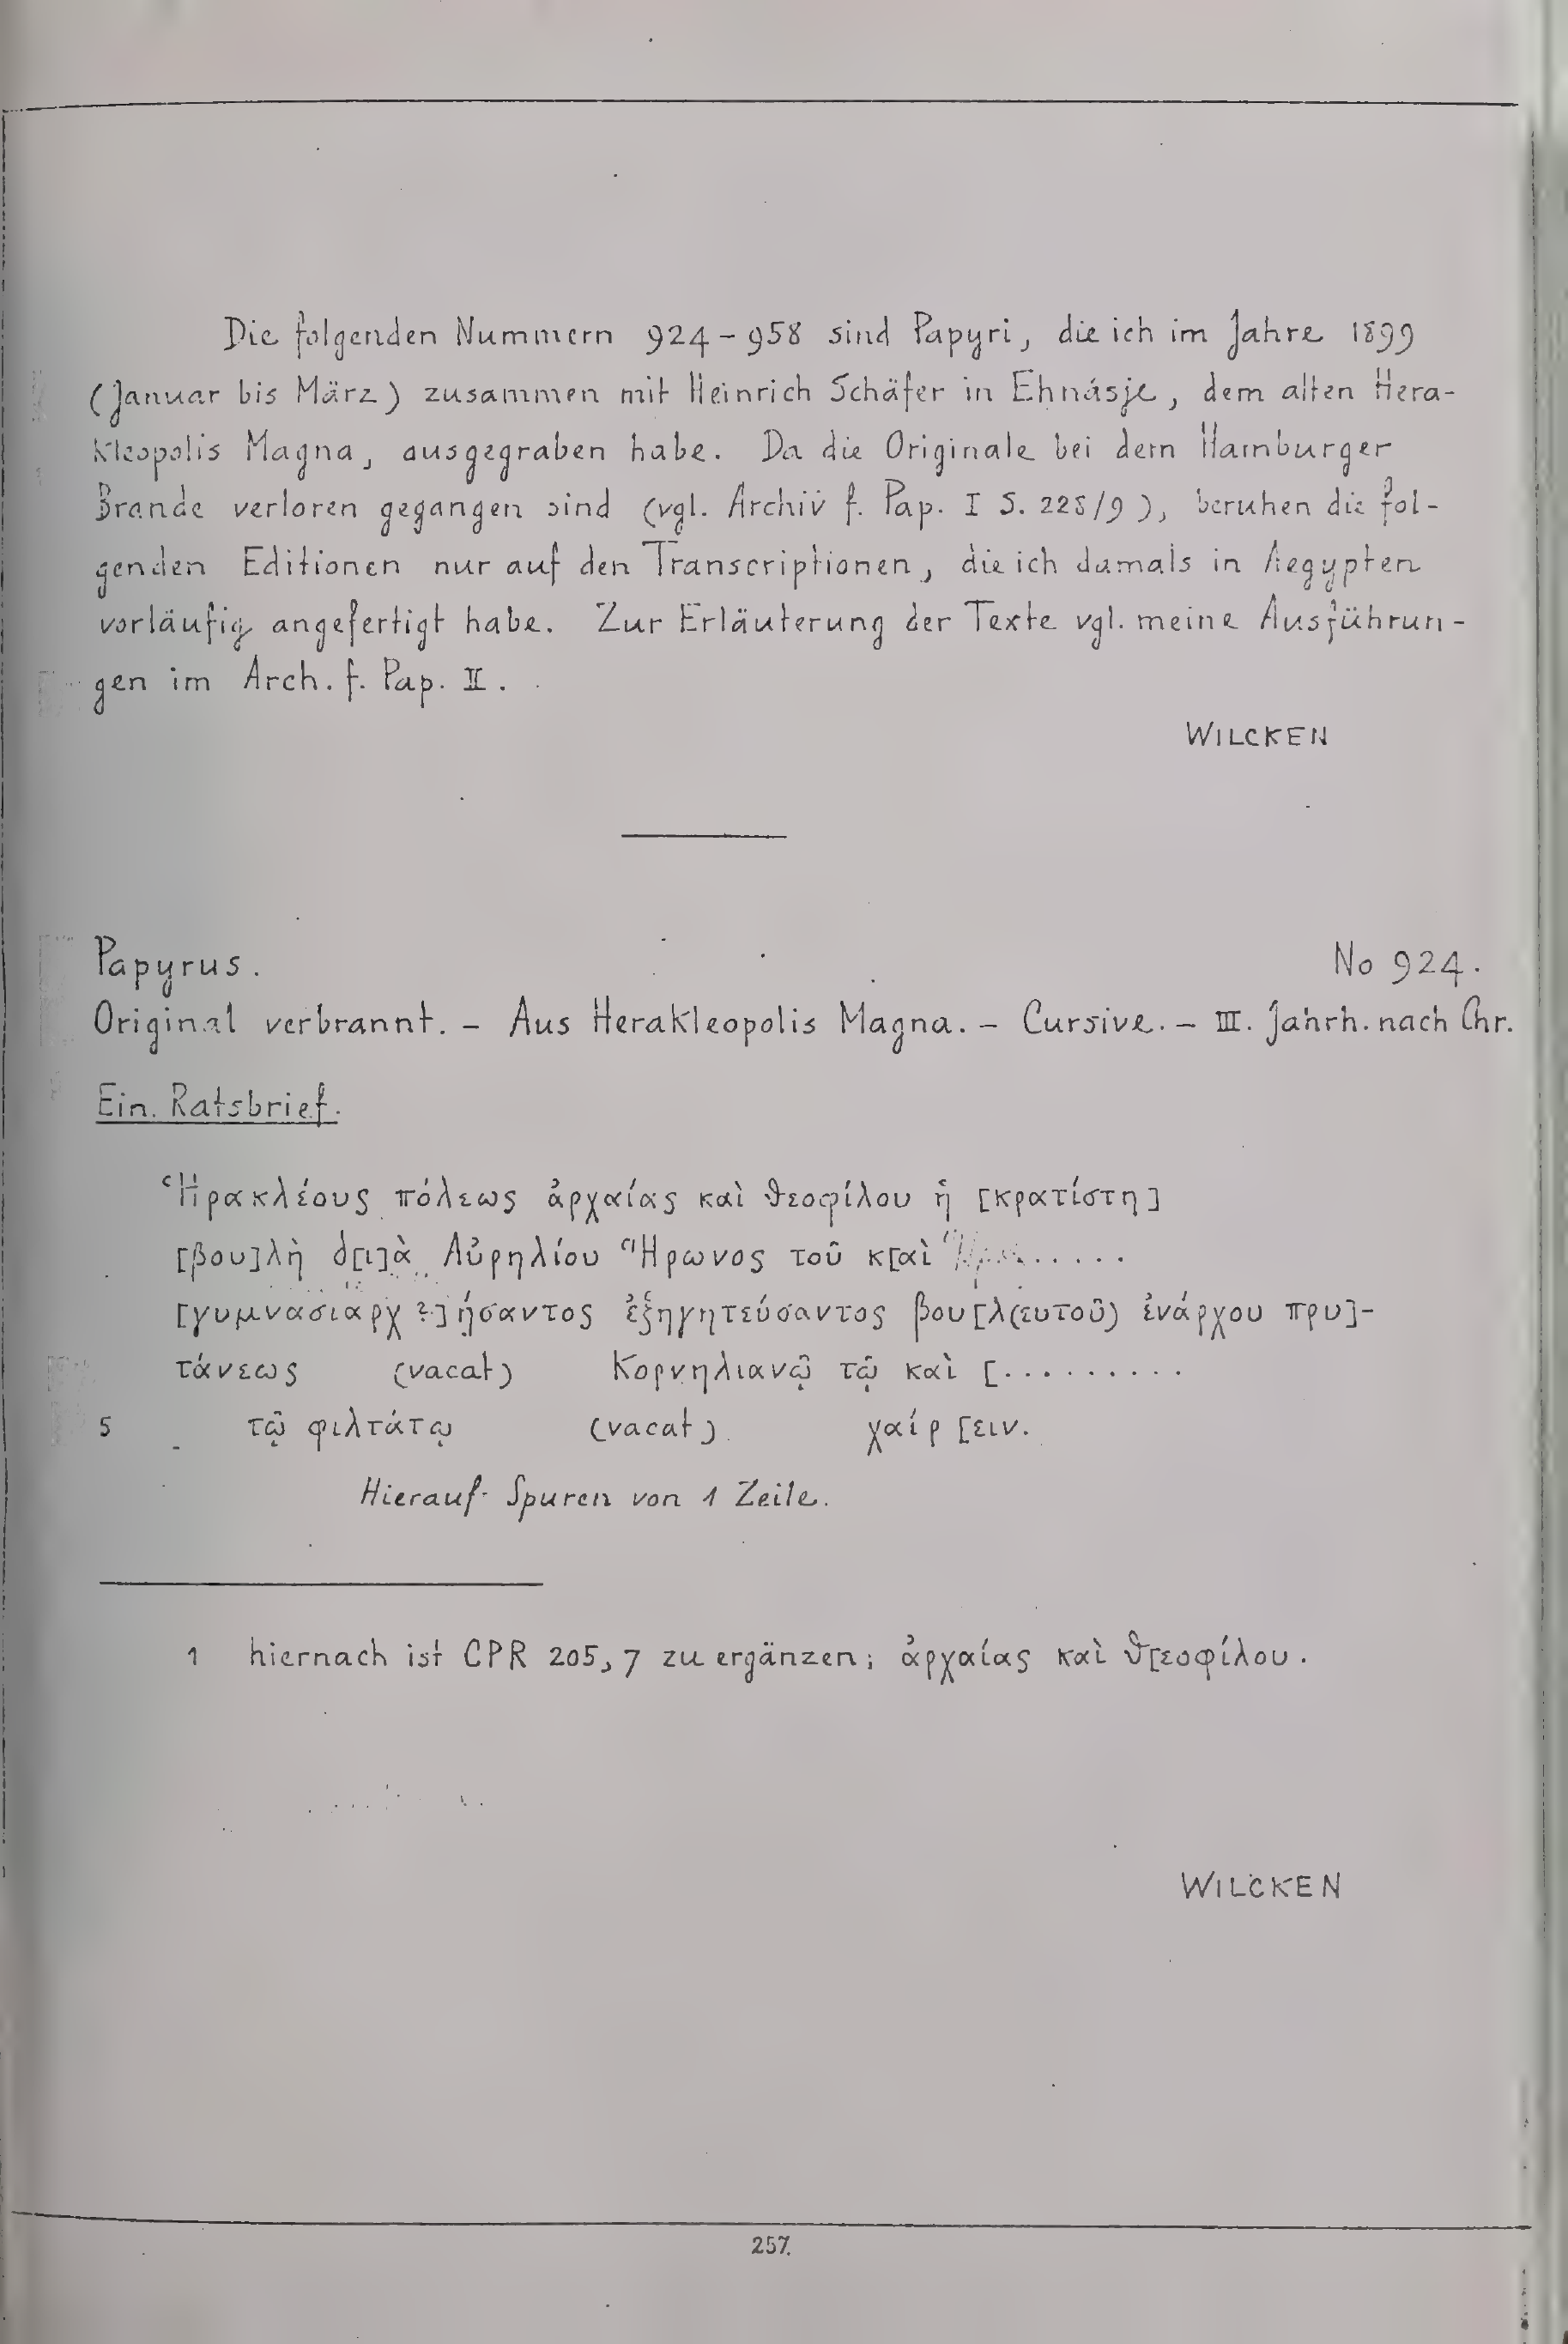 Die folgenden Nummern 924-958 sind Papyri, die ich im Jahre 1899
(Januar bis März) zusammen mit Heinrich Schäfer in Ehnásje, dem alten Hera-
kleopolis Magna, ausgegraben habe. Da die Originale bei dem Hamburger
Brande verloren gegangen sind (vgl. Archiv f. Pap. I S. 228/9), beruhen die fol-
genden Editionen nur auf den Transcriptionen, die ich damals in Aegypten
vorläufig angefertigt habe. Zur Erläuterung der Texte vgl. meine Ausführun-
gen im Arch. f. Pap. II.
WILCKEN
Papyrus. No 924.
Original verbrannt. - Aus Herakleopolis Magna. - Cursive. - III. Jahrh. nach Chr.
Ein Ratsbrief.
Ἡρακλέους πόλεως ἀρχαίας καὶ θεοφίλου ἡ [κρατίστη]
[βου]λὴ δ[ι]ὰ Αὐρηλίου Ἥρωνος τοῦ κ[αὶ ......
[γυμνασιαρχ?]ήσαντος ἐξηγητεύσαντος βου[λ(ευτοῦ) ἐνάρχου πρυ]-
τάνεως (vacat) Κορνηλιανῷ τῷ καὶ [.........
5 τῷ φιλτάτῳ (vacat) χαίρ[ειν.
Hierauf Spuren von 1 Zeile.
1 hiernach ist CPR 205,7 zu ergänzen; ἀρχαίας καὶ θ[εοφίλου.
WILCKEN
257